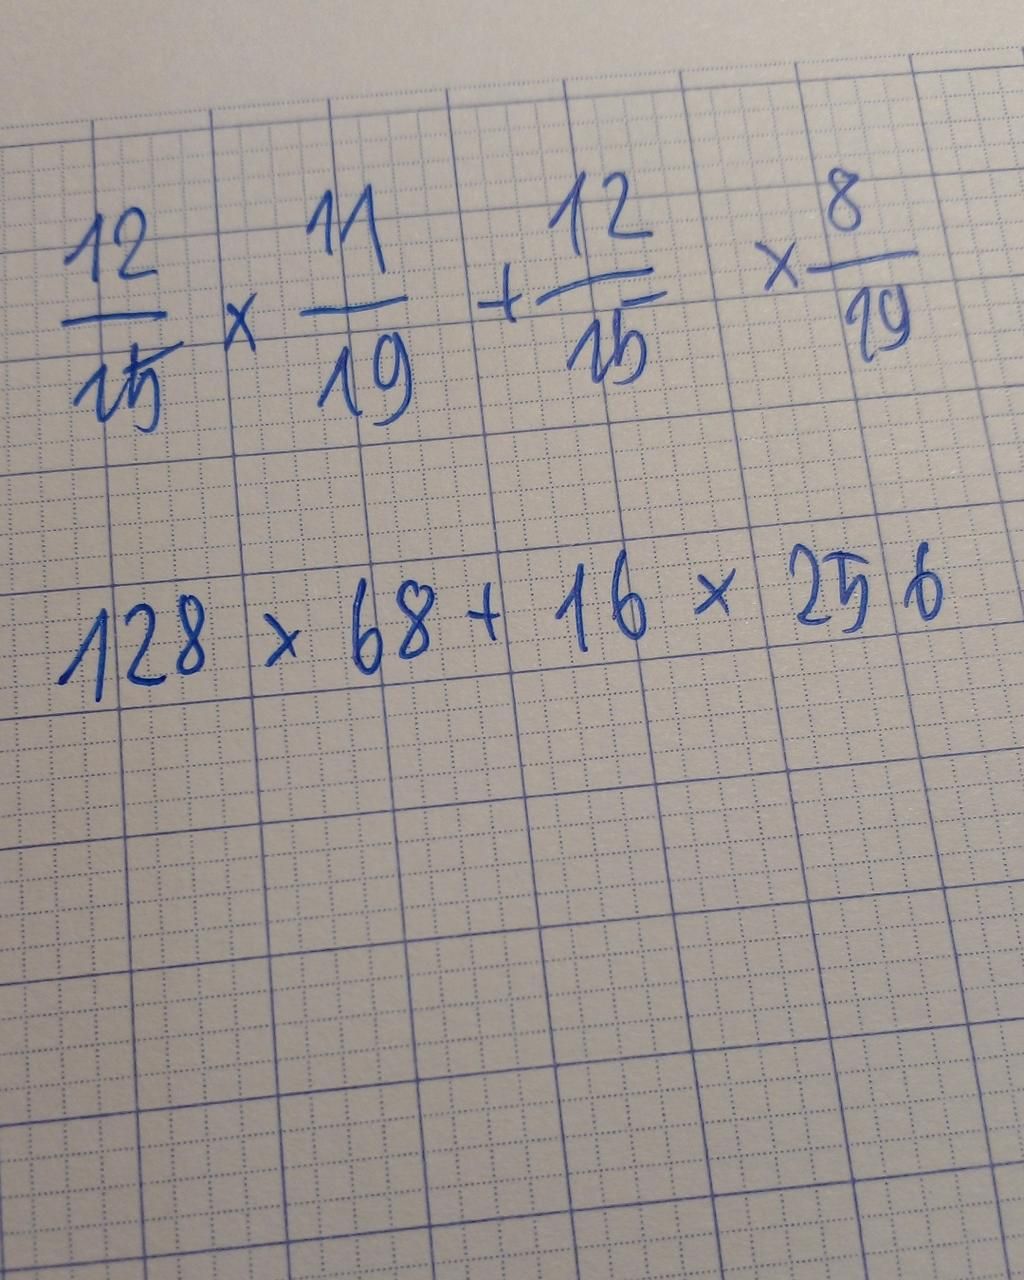 12/15 × 11/19 + 12/15 × 8/19
128 × 68 + 16 × 256